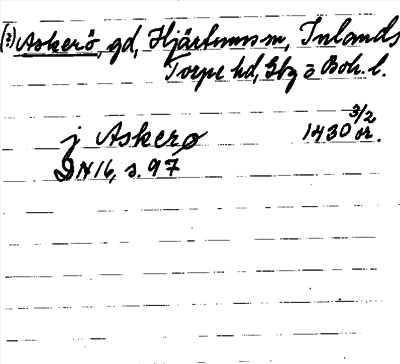 (2) Askerö, gd, Hjärtums sn, Inlands
Torpe hd, Gbg o Boh. l.
j Askerø 1430 3/2 or.
DN 16, s. 97